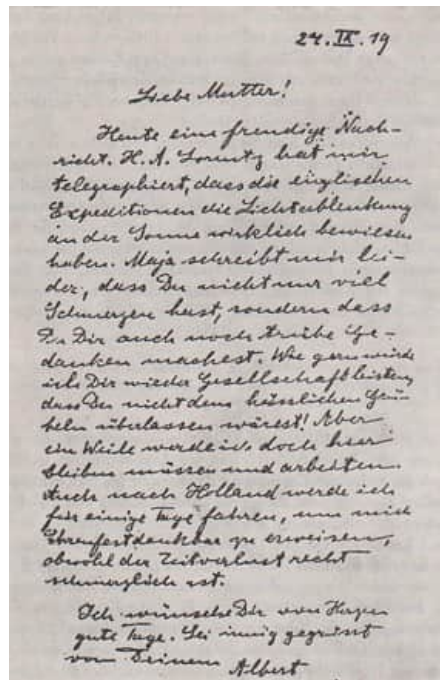 24. IX. 19
Liebe Mutter!
Heute eine freudige Nach-
richt. H. A. Lorentz hat mir
telegraphiert, dass die englischen
Expeditionen die Lichtablenkung
an der Sonne wirklich bewiesen
haben. Maja schreibt mir lei-
der, dass Du nicht nur viel
Schmerzen hast, sondern dass
Du Dir auch noch trübe Ge-
danken machest. Wie gern würde
ich Dir wieder Gesellschaft leisten,
dass Du nicht dem hässlichen Grü-
beln überlassen wärest! Aber
ein Weile werde ich doch hier
bleiben müssen und arbeiten.
Auch nach Holland werde ich
für einige Tage fahren, um mich
Ehrenfest dankbar zu erweisen,
obwohl der Zeitverlust recht
schmerzlich ist.
Ich wünsche Dir von Herzen
gute Tage. Sei innig gegrüsst
von Deinem
Albert